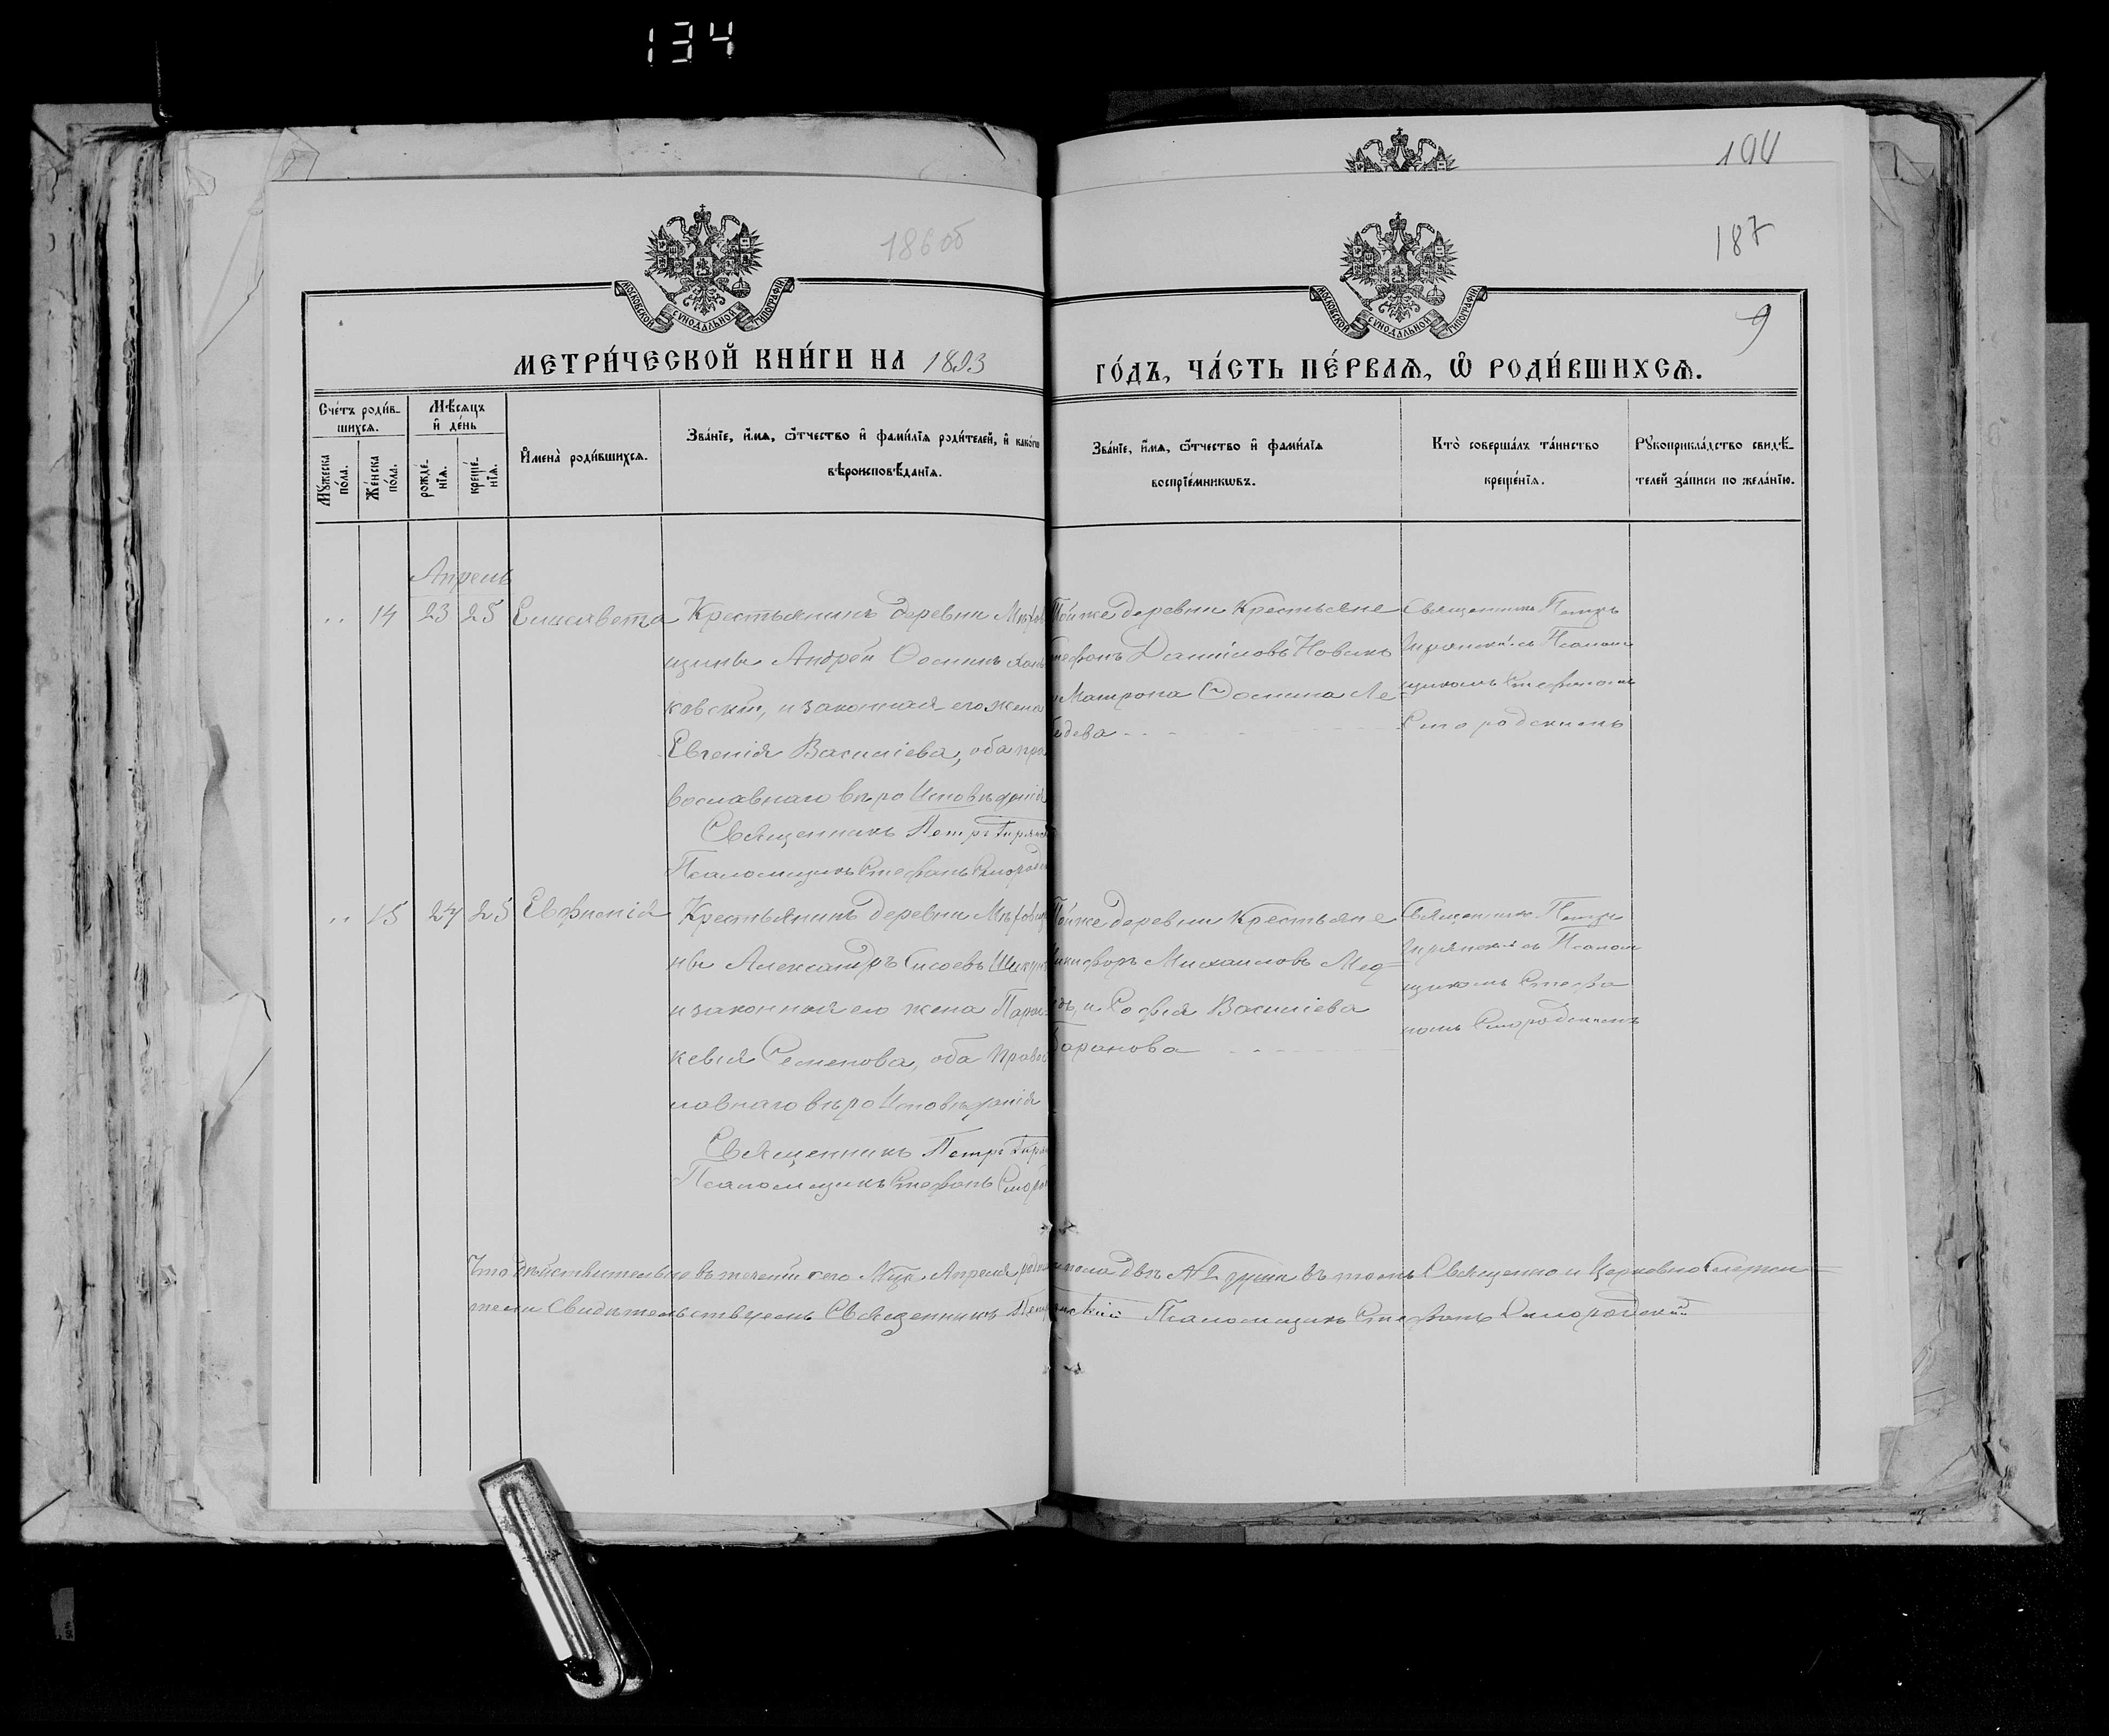 134
104
186 об
187
МОСКОВСКОЙ СѴНОДАЛЬНОЙ ТИПОГРАФІИ
МОСКОВСКОЙ СѴНОДАЛЬНОЙ ТИПОГРАФІИ
9
МЕТРИ́ЧЕСКОЙ КНИ́ГИ НА 1893
ГО́ДЪ, ЧА́СТЬ ПЕ́РВАѦ, Ѡ҆ РОДИ́ВШИХСѦ.
Сче́тъ роди́в-
шихсѧ.
Мꙋ́жеска по́ла.
Же́нска по́ла.
Мѣ́сѧцъ
и҆ де́нь
рожде́-
нїѧ.
креще́-
нїѧ.
И҆мена̀ роди́вшихсѧ.
Зва́нїе, и҆́мѧ, ѻ҆́тчество и҆ фами́лїѧ роди́телей, и҆ како́гѡ
вѣроисповѣ́данїѧ.
Зва́нїе, и҆́мѧ, ѻ҆́тчество и҆ фами́лїѧ
воспрїе́мникѡвъ.
Кто̀ соверша́лъ та́инство
креще́нїѧ.
Рꙋкоприкла́дство свидѣ́-
телей за́писи по жела́нїю.
Апрель
14 23 25 Елисавета
Крестьянинъ деревни
щины Андрей Осиповъ
ковскій, и законная его жена
Евгенія Василіева, оба пра
вославнаго вѣроисповѣданія
Священникъ Петръ
Псаломщикъ Стефанъ
Той же деревни Крестьяне
Стефанъ Даниловъ Новикъ
и Матрона Осипова Ле
бедева
Священникъ Петръ
Псалом
щикомъ Стефаномъ
15 24 25 Евфимія
Крестьянинъ деревни
ны Александръ Сисоевъ
и законная его жена Парас
кевія Семенова, оба правос
лавнаго вѣроисповѣданія
Священникъ Петръ
Псаломщикъ Стефанъ
Той же деревни Крестьяне
Никифоръ Михаиловъ Мед
и Софія Василіева
Баранова
Священникъ Петръ
Псалом
щикомъ Стефа
номъ
Что дѣйствительно въ теченіи сего Мца Апреля въ томъ Священно и Церковно служи
тели Свидѣтельствуемъ Священникъ Псаломщикъ Стефанъ